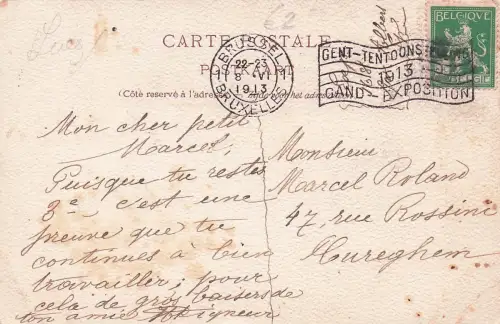 Lucy
£2
CARTE POSTALE
BELGIQUE
BRUSSEL
22-23
8 VI
1913
BRUXELLES
GENT-TENTOONSTELLING
1913
GAND EXPOSITION
(Côté reservé à l'adresse
Mon cher petit
Marcel,
Puisque tu restes
3e c'est une
preuve que tu
continues à bien
travailler; pour
cela de gros baisers de
ton amie
Monsieur
Marcel Roland
47, rue Rossini
Cureghem